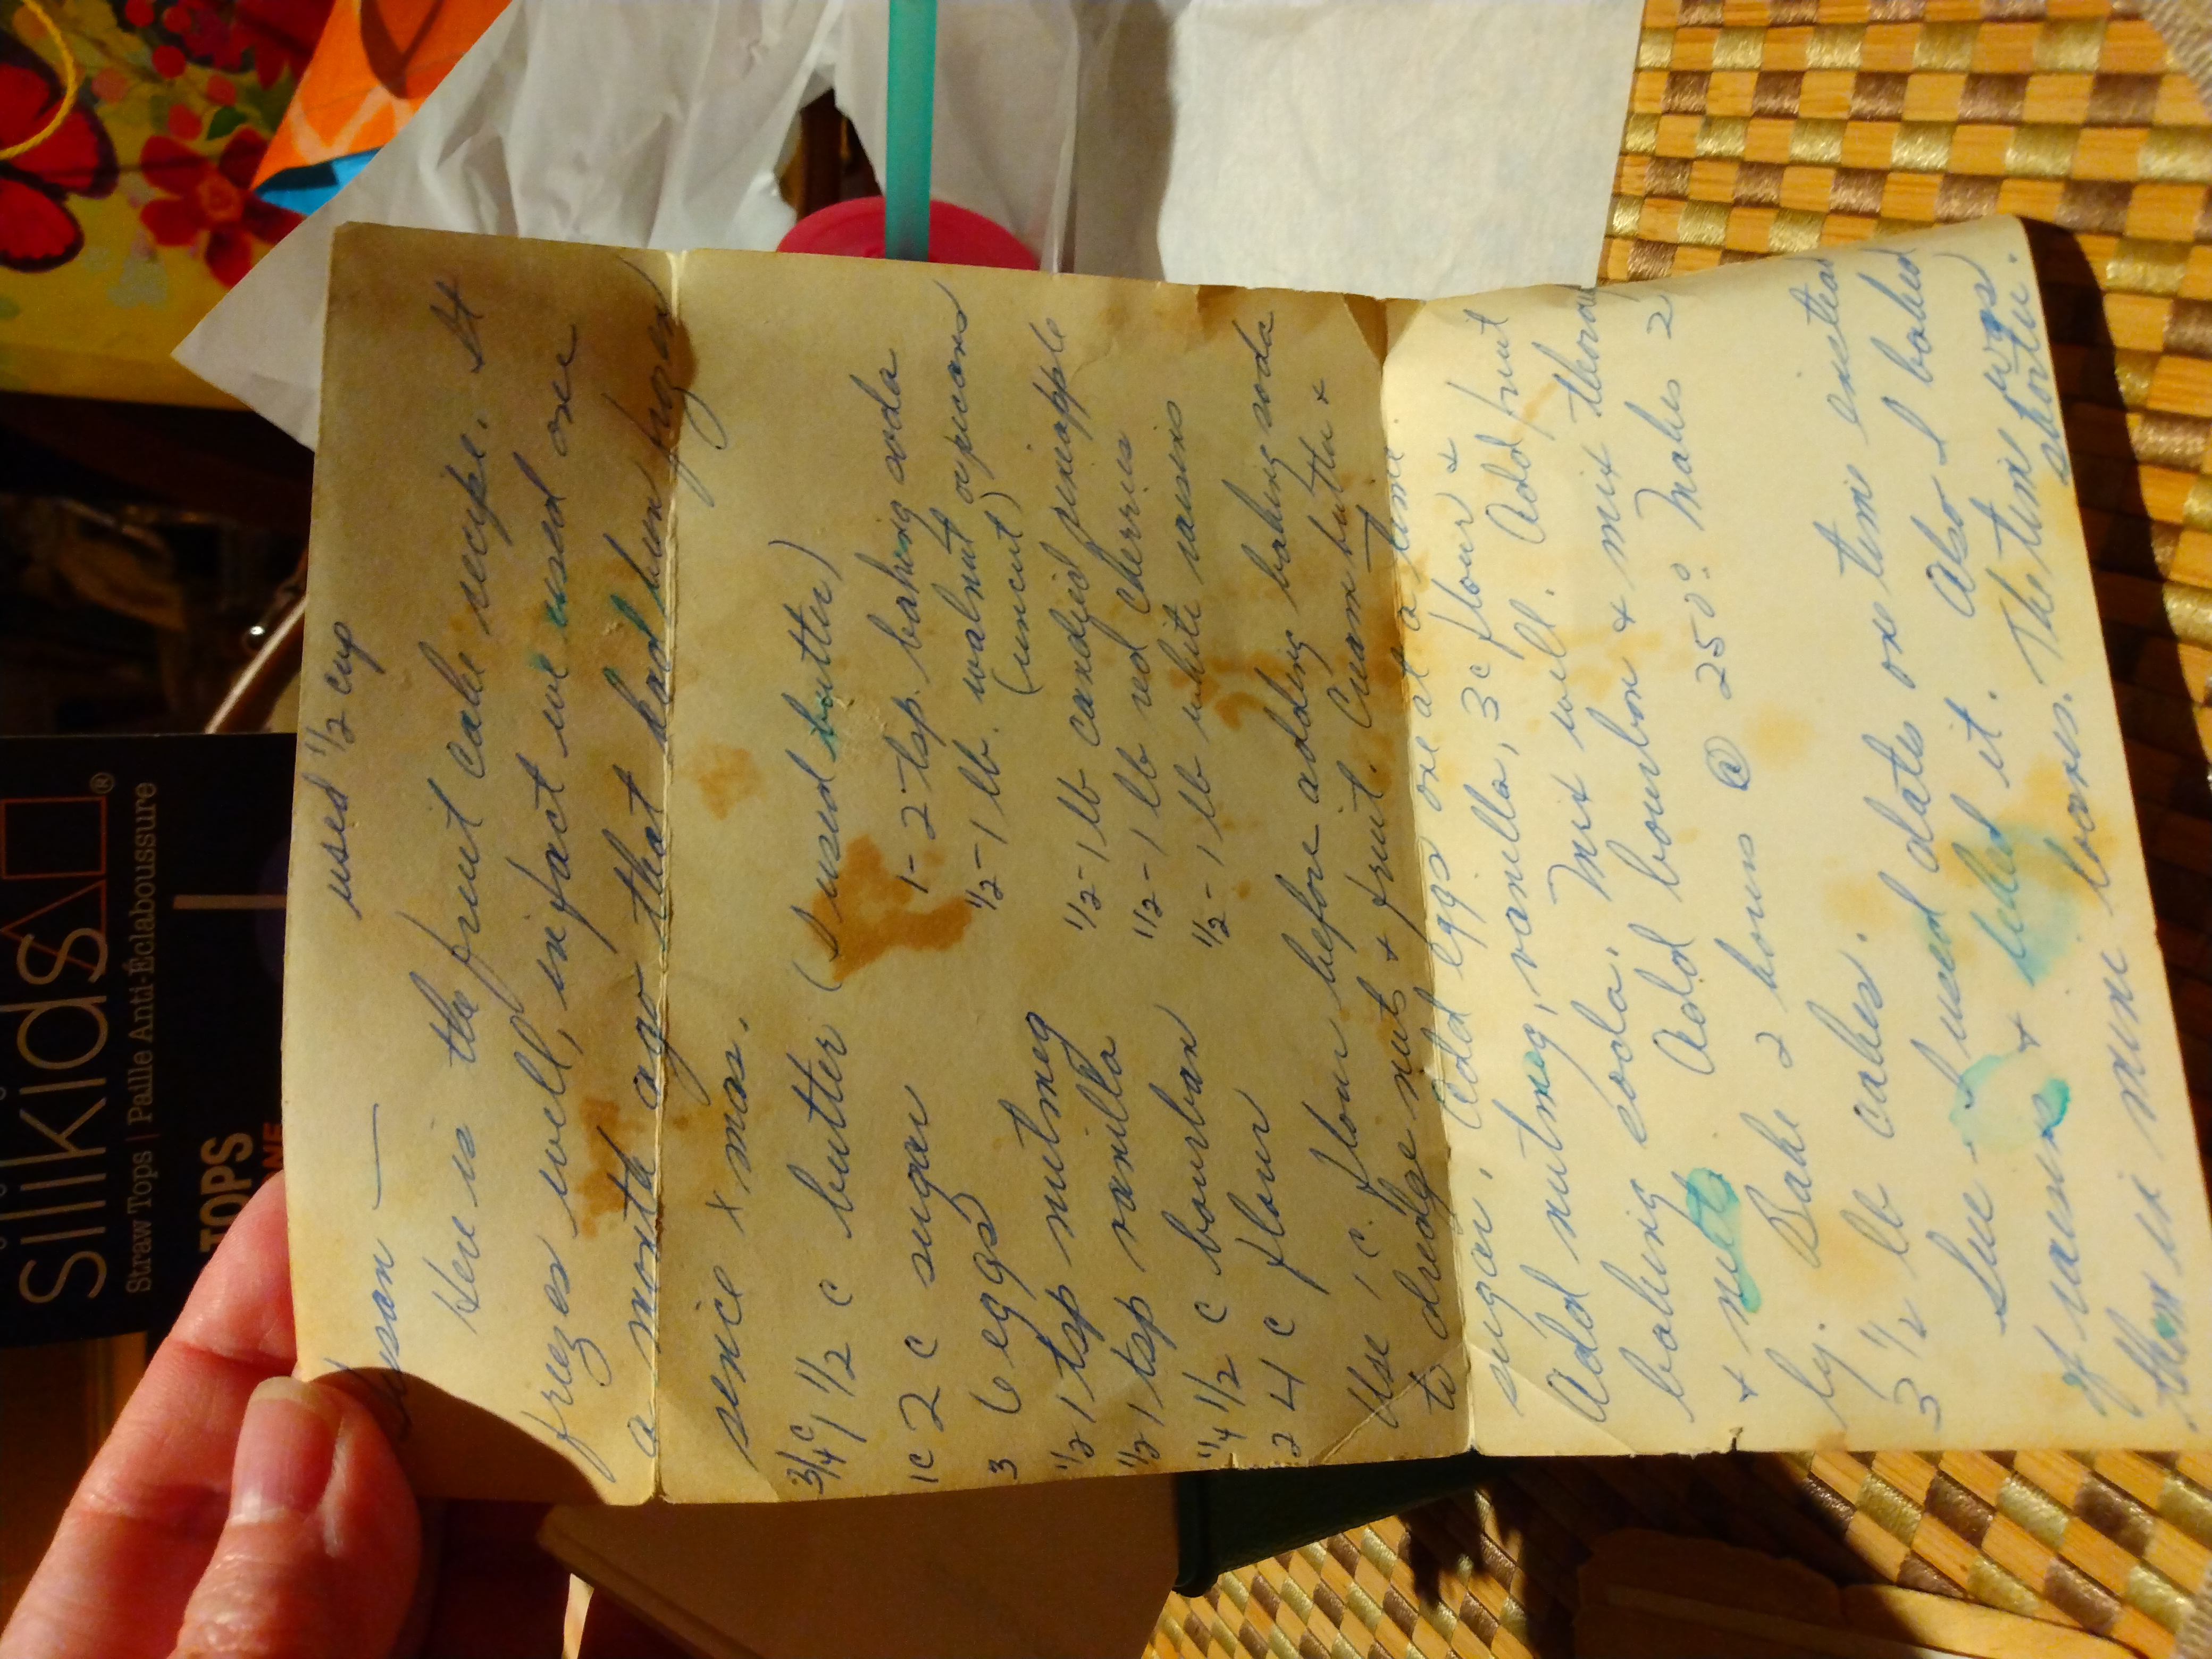 used 1/2 cup
Here is the fruit cake recipe. It
frezes well, in fact we used one
a month ago that had been frozen
since Xmas.
3/4 c 1 1/2 c butter (I used butter)
1c 2 c sugar 1-2 tsp. baking soda
3 6 eggs 1/2-1 lb. walnut or pecans
(uncut)
1/2 1 tsp nutmeg 1/2-1 lb candied pineapple
1/2 1 tsp vanilla 1/2-1 lb red cherries
1/4 1/2 c bourban 1/2-1 lb white raisins
2 4 c flour
Use 1 c. flour before adding baking soda
to dredge nuts + fruit. Cream butter +
sugar. Add eggs one at a time.
Add nutmeg, vanilla, 3c flour +
baking soda. Mix well. Add fruit
+ nuts. Add bourbon + mix thorough
ly. Bake 2 hours @ 250°. Makes 2
3 1/2 lb cakes.
Sue - I used dates one time instead
of raisins + liked it. Also I baked
them in mine loaves. The time was
shorter.
sılıkıds®
Straw Tops | Palle Anti-Éclaboussure
TOPS